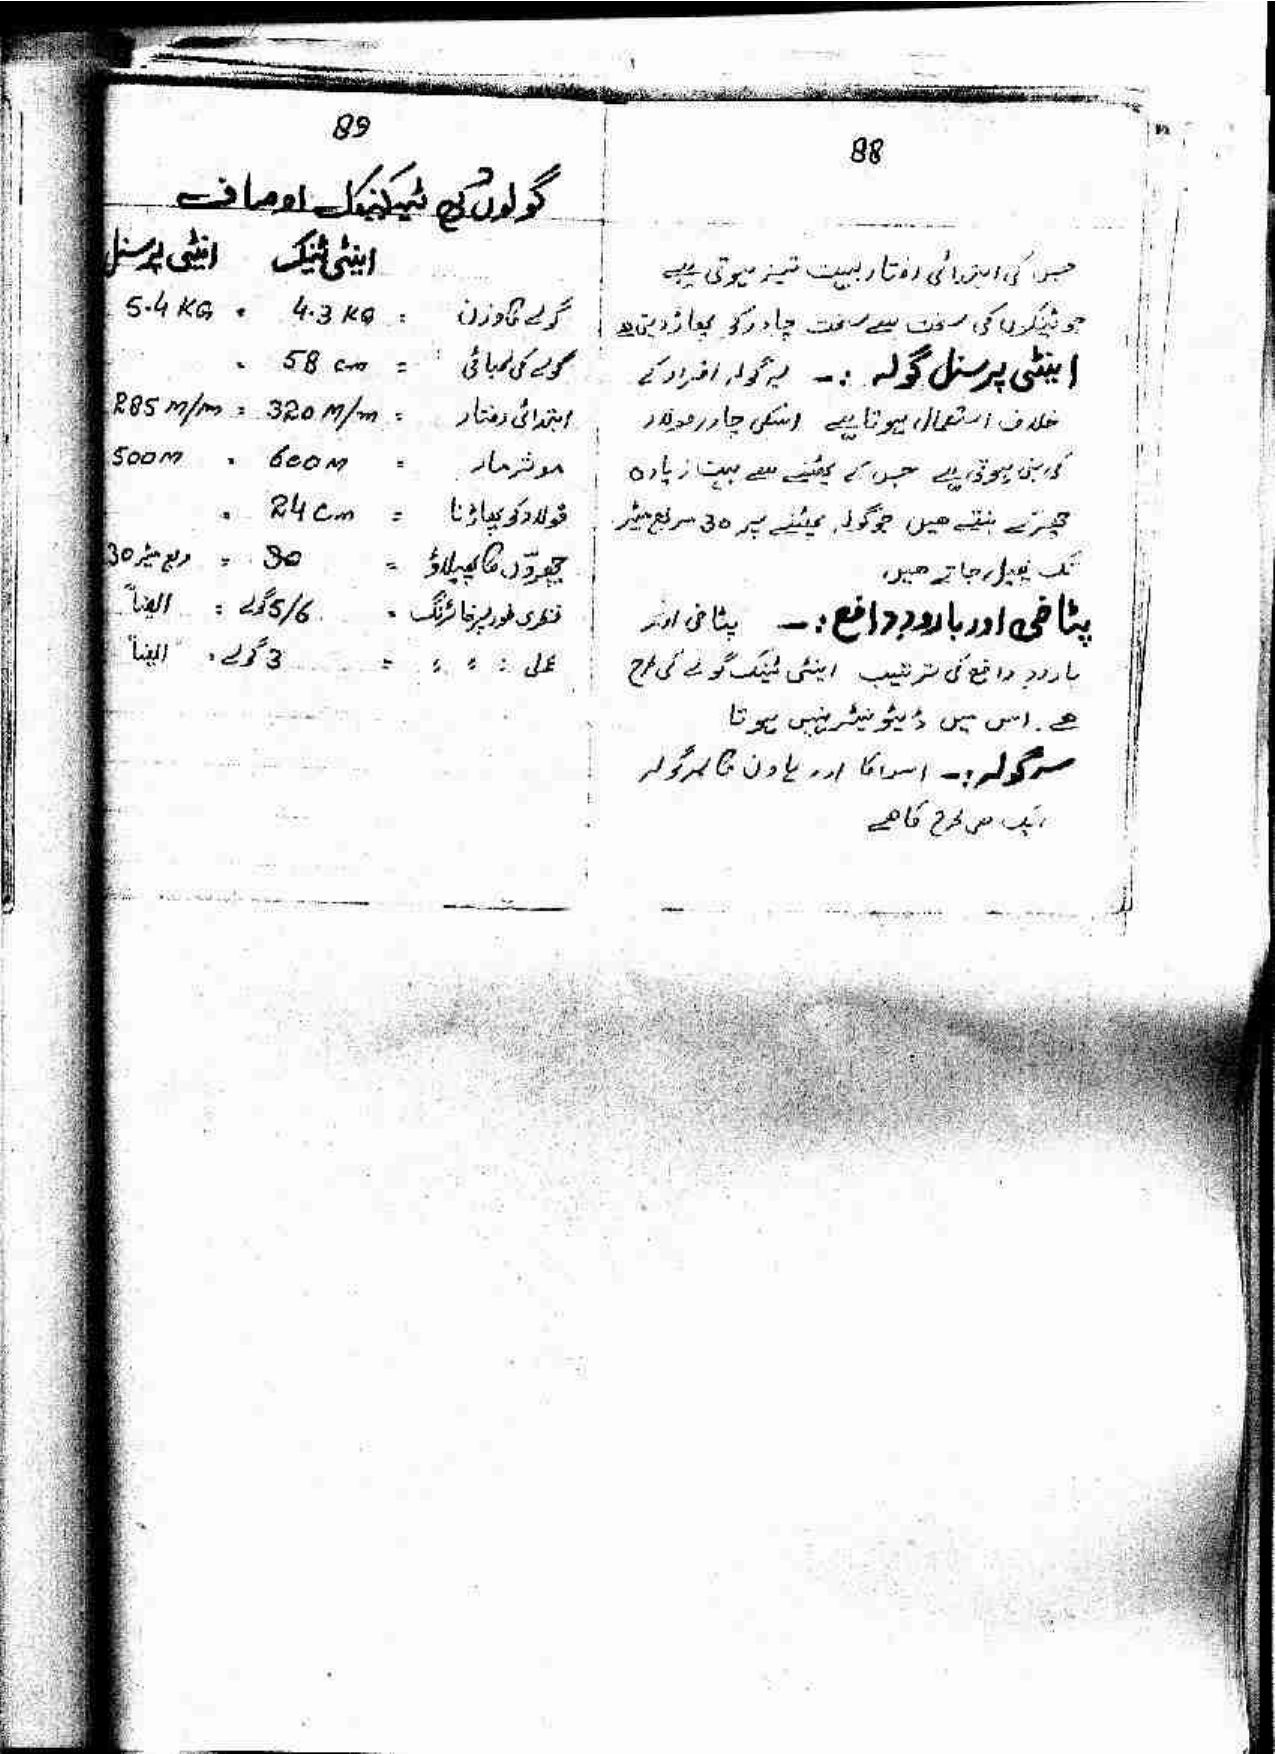 88
جس کی ابتدائی رفتار بہت تیز ہوتی ہے
جو ٹینکوں کی سخت سے سخت چادر کو پھاڑ دیتی ہے
اینٹی پرسنل گولہ :- یہ گولہ افراد کے
خلاف استعمال ہوتا ہے اسکی چادر فولاد
کی بنی ہوتی ہے جس کے پھٹنے سے بہت زیادہ
چھرّے بنتے ھیں جو گولہ پھٹنے پر 30 مربع میٹر
تک پھیل جاتے ھیں
پٹاخی اور بارود دافع :- پٹاخی اور
بارود دافع کی ترتیب اینٹی ٹینک گولے کی طرح
ھے. اس میں ڈیٹونیٹر نہیں ہوتا
سر گولہ :- اسکا اور ہاون کا سر گولہ
ایک ھی طرح کا ھے
89
گولوں کی ٹیکنیکل اوصاف
اینٹی ٹینک اینٹی پرسنل
گولے کا وزن = 4.3 KG = 5.4 KG
گولے کی لمبائی = 58 cm =
ابتدائی رفتار = 320 M/m = 285 M/m
موثر مار = 600M = 500M
فولاد کو پھاڑنا = 24 cm =
چھروّں کا پھیلاؤ = 30 = 30 مربع میٹر
نظری طور پر فائرنگ = 5/6 گولے = ایضاً
عملی = = = = 3 گولے = ایضاً